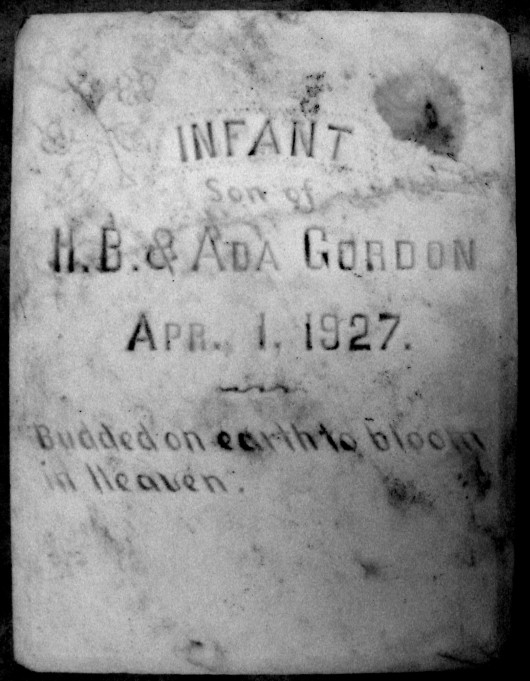 INFANT
Son of
H.B. & ADA GORDON
APR. 1. 1927.
Budded on earth to bloom
in Heaven.